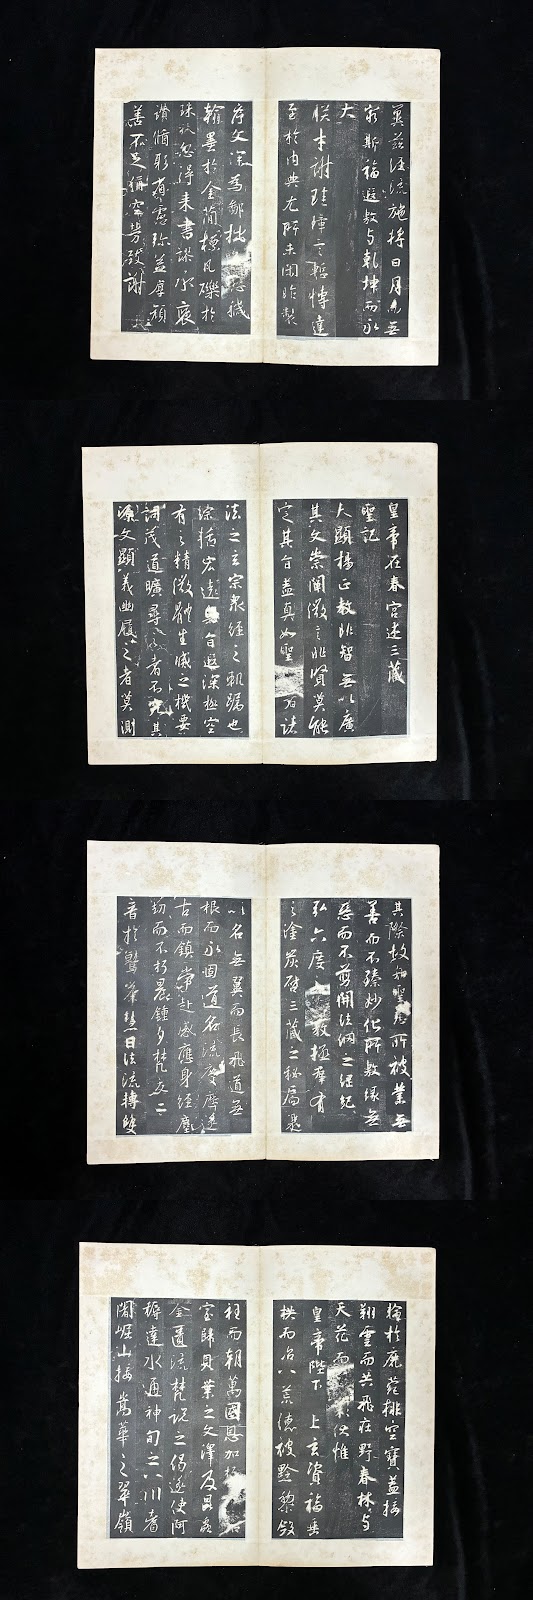 冀茲經流施將日月而無
窮斯福遐敷與乾坤而永
大
朕才謝珪璋言慚博達
至於內典尤所未閑昨製
序文深為鄙拙恐穢
翰墨於金簡標瓦礫於
珠林忽得來書謬承褒
讚循躬省慮彌益厚顏
善不足稱空勞致謝
皇帝在春宮述三藏
聖記
夫顯揚正教非智無以廣
其文崇闡微言非賢莫能
定其旨蓋真如聖者諸
法之玄宗眾經之軌躅也
綜括宏遠奧旨遐深極空
有之精微體生滅之機要
詞茂道曠尋之者不究其
源文顯義幽履之者莫測
其際故知聖慈所被業無
善而不臻妙化所敷緣無
惡而不剪開法網之綱紀
弘六度教拯群有
之塗炭啟三藏之秘扃是
以名無翼而長飛道無
根而永固道名流慶歷遂
古而鎮常赴感應身經塵
劫而不朽晨鐘夕梵交二
音於鷲峰慧日法流轉雙
輪於鹿菀排空寶蓋接
翔雲而共飛莊野春林與
天花而彩伏惟
皇帝陛下上玄資福垂
拱而治八荒德被黔黎斂
衽而朝萬國恩加朽石
室歸貝葉之文澤及昆蟲
金匱流梵說之偈遂使阿
耨達水通神甸之八川耆
闍崛山接嵩華之翠嶺